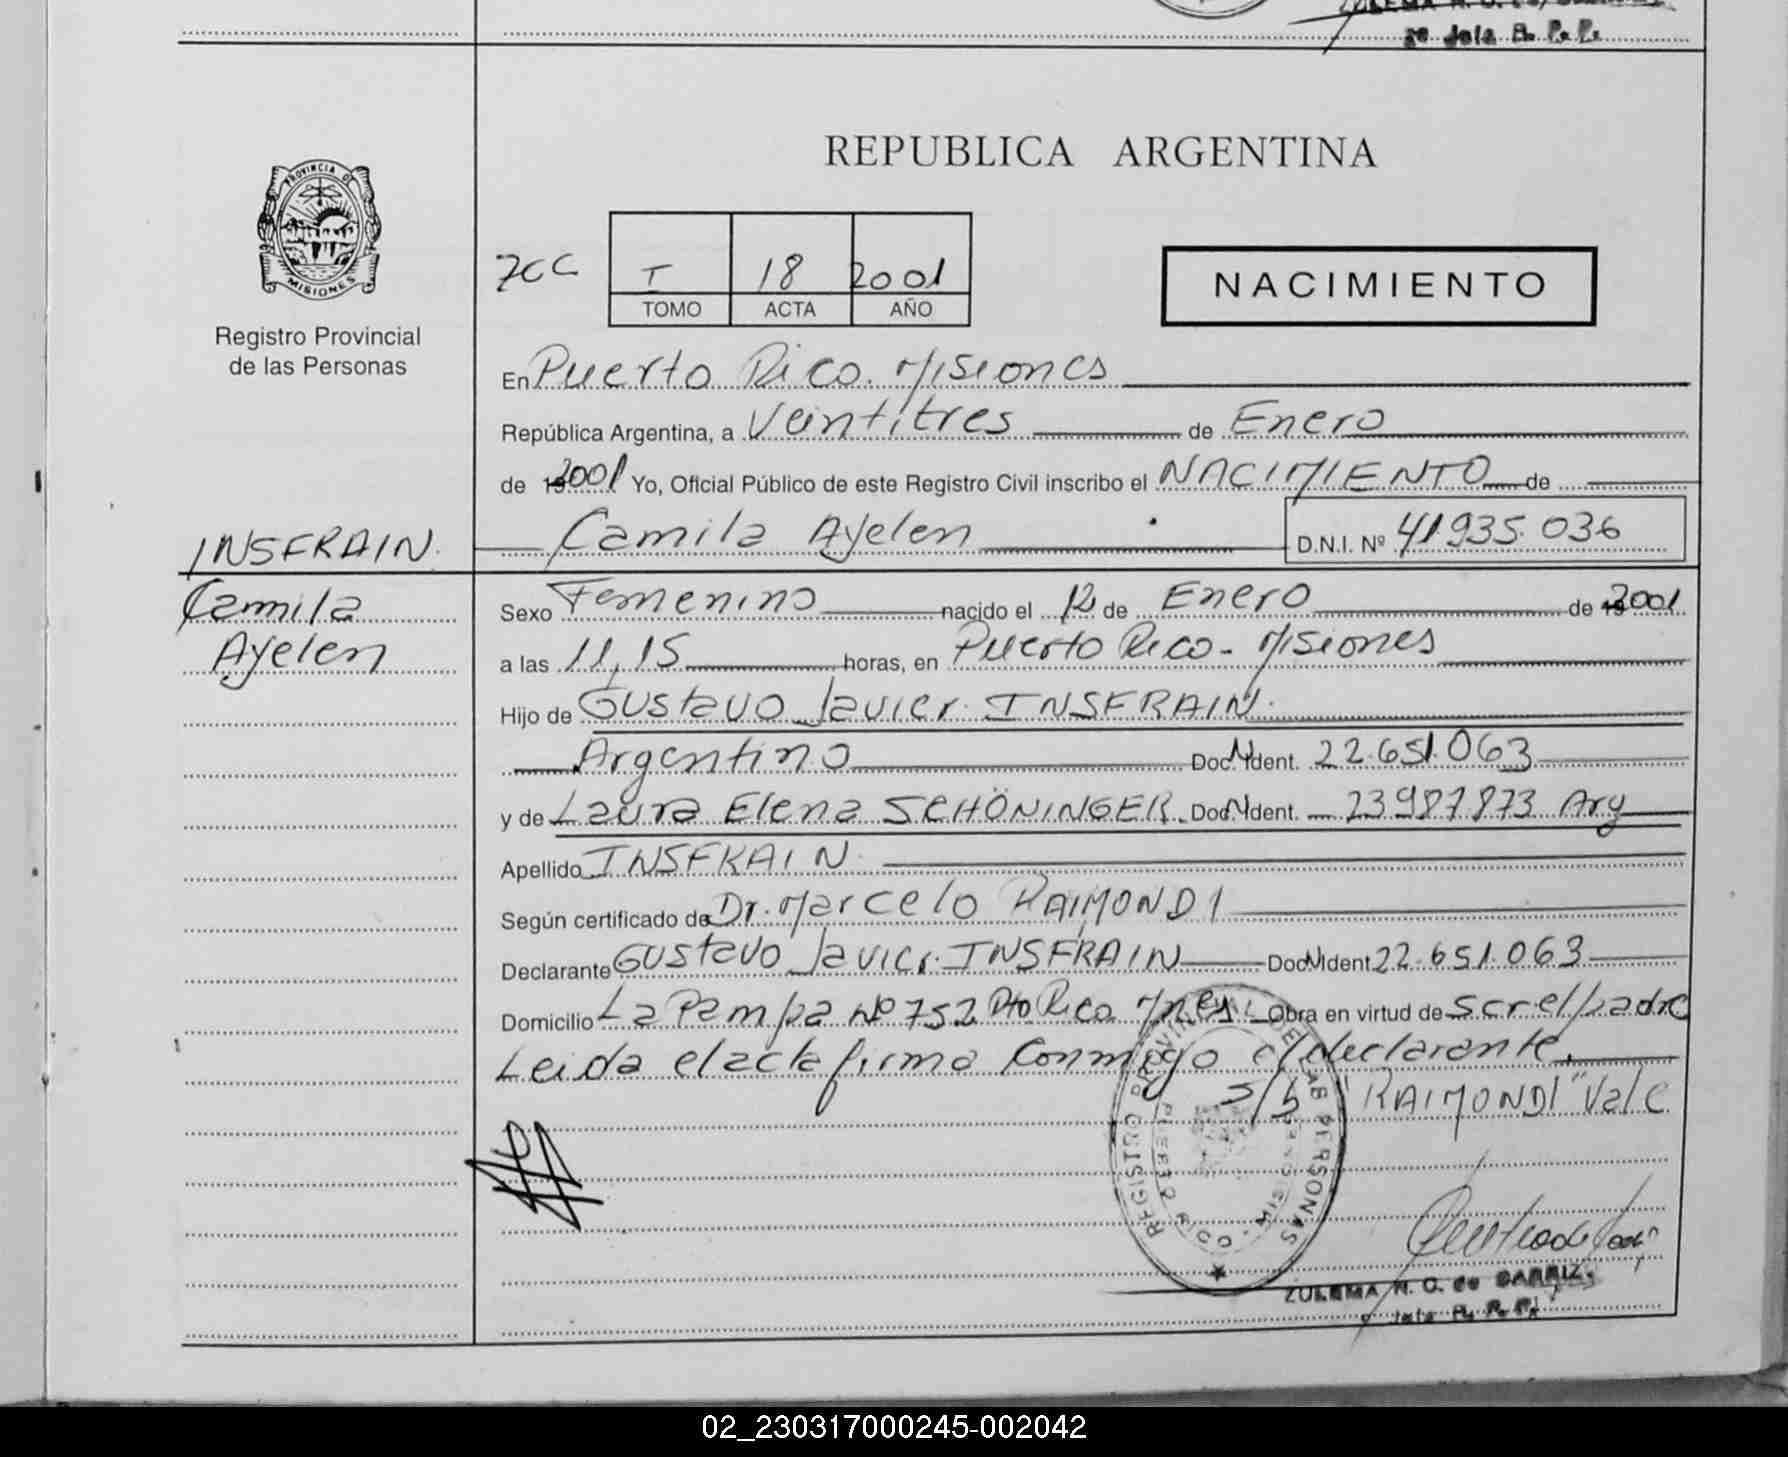 2º Jefe R. P. P.
REPUBLICA ARGENTINA
PROVINCIA DE
MISIONES
Registro Provincial
de las Personas
I 18 2001
TOMO ACTA AÑO
NACIMIENTO
En Puerto Rico. Misiones
República Argentina, a Veintitres de Enero
de 2001 Yo, Oficial Público de este Registro Civil inscribo el NACIMIENTO de
INSFRAIN.
Camila
Ayelen
Camila Ayelen D.N.I. Nº 41935.036
Sexo Femenino nacido el 12 de Enero de 2001
a las 11,15 horas, en Puerto Rico - Misiones
Hijo de Gustavo Javier. INSFRAIN.
Argentino Doc. N. Ident. 22.651.063
y de Laura Elena SCHÖNINGER. Doc. N. Ident. 23987873 Arg
Apellido INSFRAIN.
Según certificado de Dr. Marcelo RAIMONDI
Declarante Gustavo Javier. INSFRAIN Doc. N. Ident 22.651.063
Domicilio La Pampa Nº 752 Pto Rico Mnes. Obra en virtud de ser el padre
Leida el acta firma conmigo el declarante.
S/b "RAIMONDI" Vale
REGISTRO PROVINCIAL DE LAS PERSONAS
MISIONES
ZULEMA N. G. de
Jefe R. P. P.
02_230317000245-002042